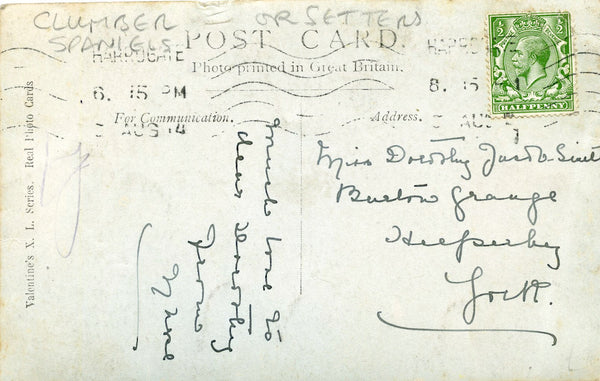 CLUMBER — OR SETTERS
SPANIELS
POST CARD.
Photo printed in Great Britain.
HARROGATE
6. 15 PM
AUG 14
HARROGATE
8. 15
AUG
½ ½
HALFPENNY
For Communication.
Address.
Valentine's X. L. Series. Real Photo Cards
much love to
dear Dorothy
from
Miss Dorothy Jacob Smith
Burton Grange
Helperby
York.